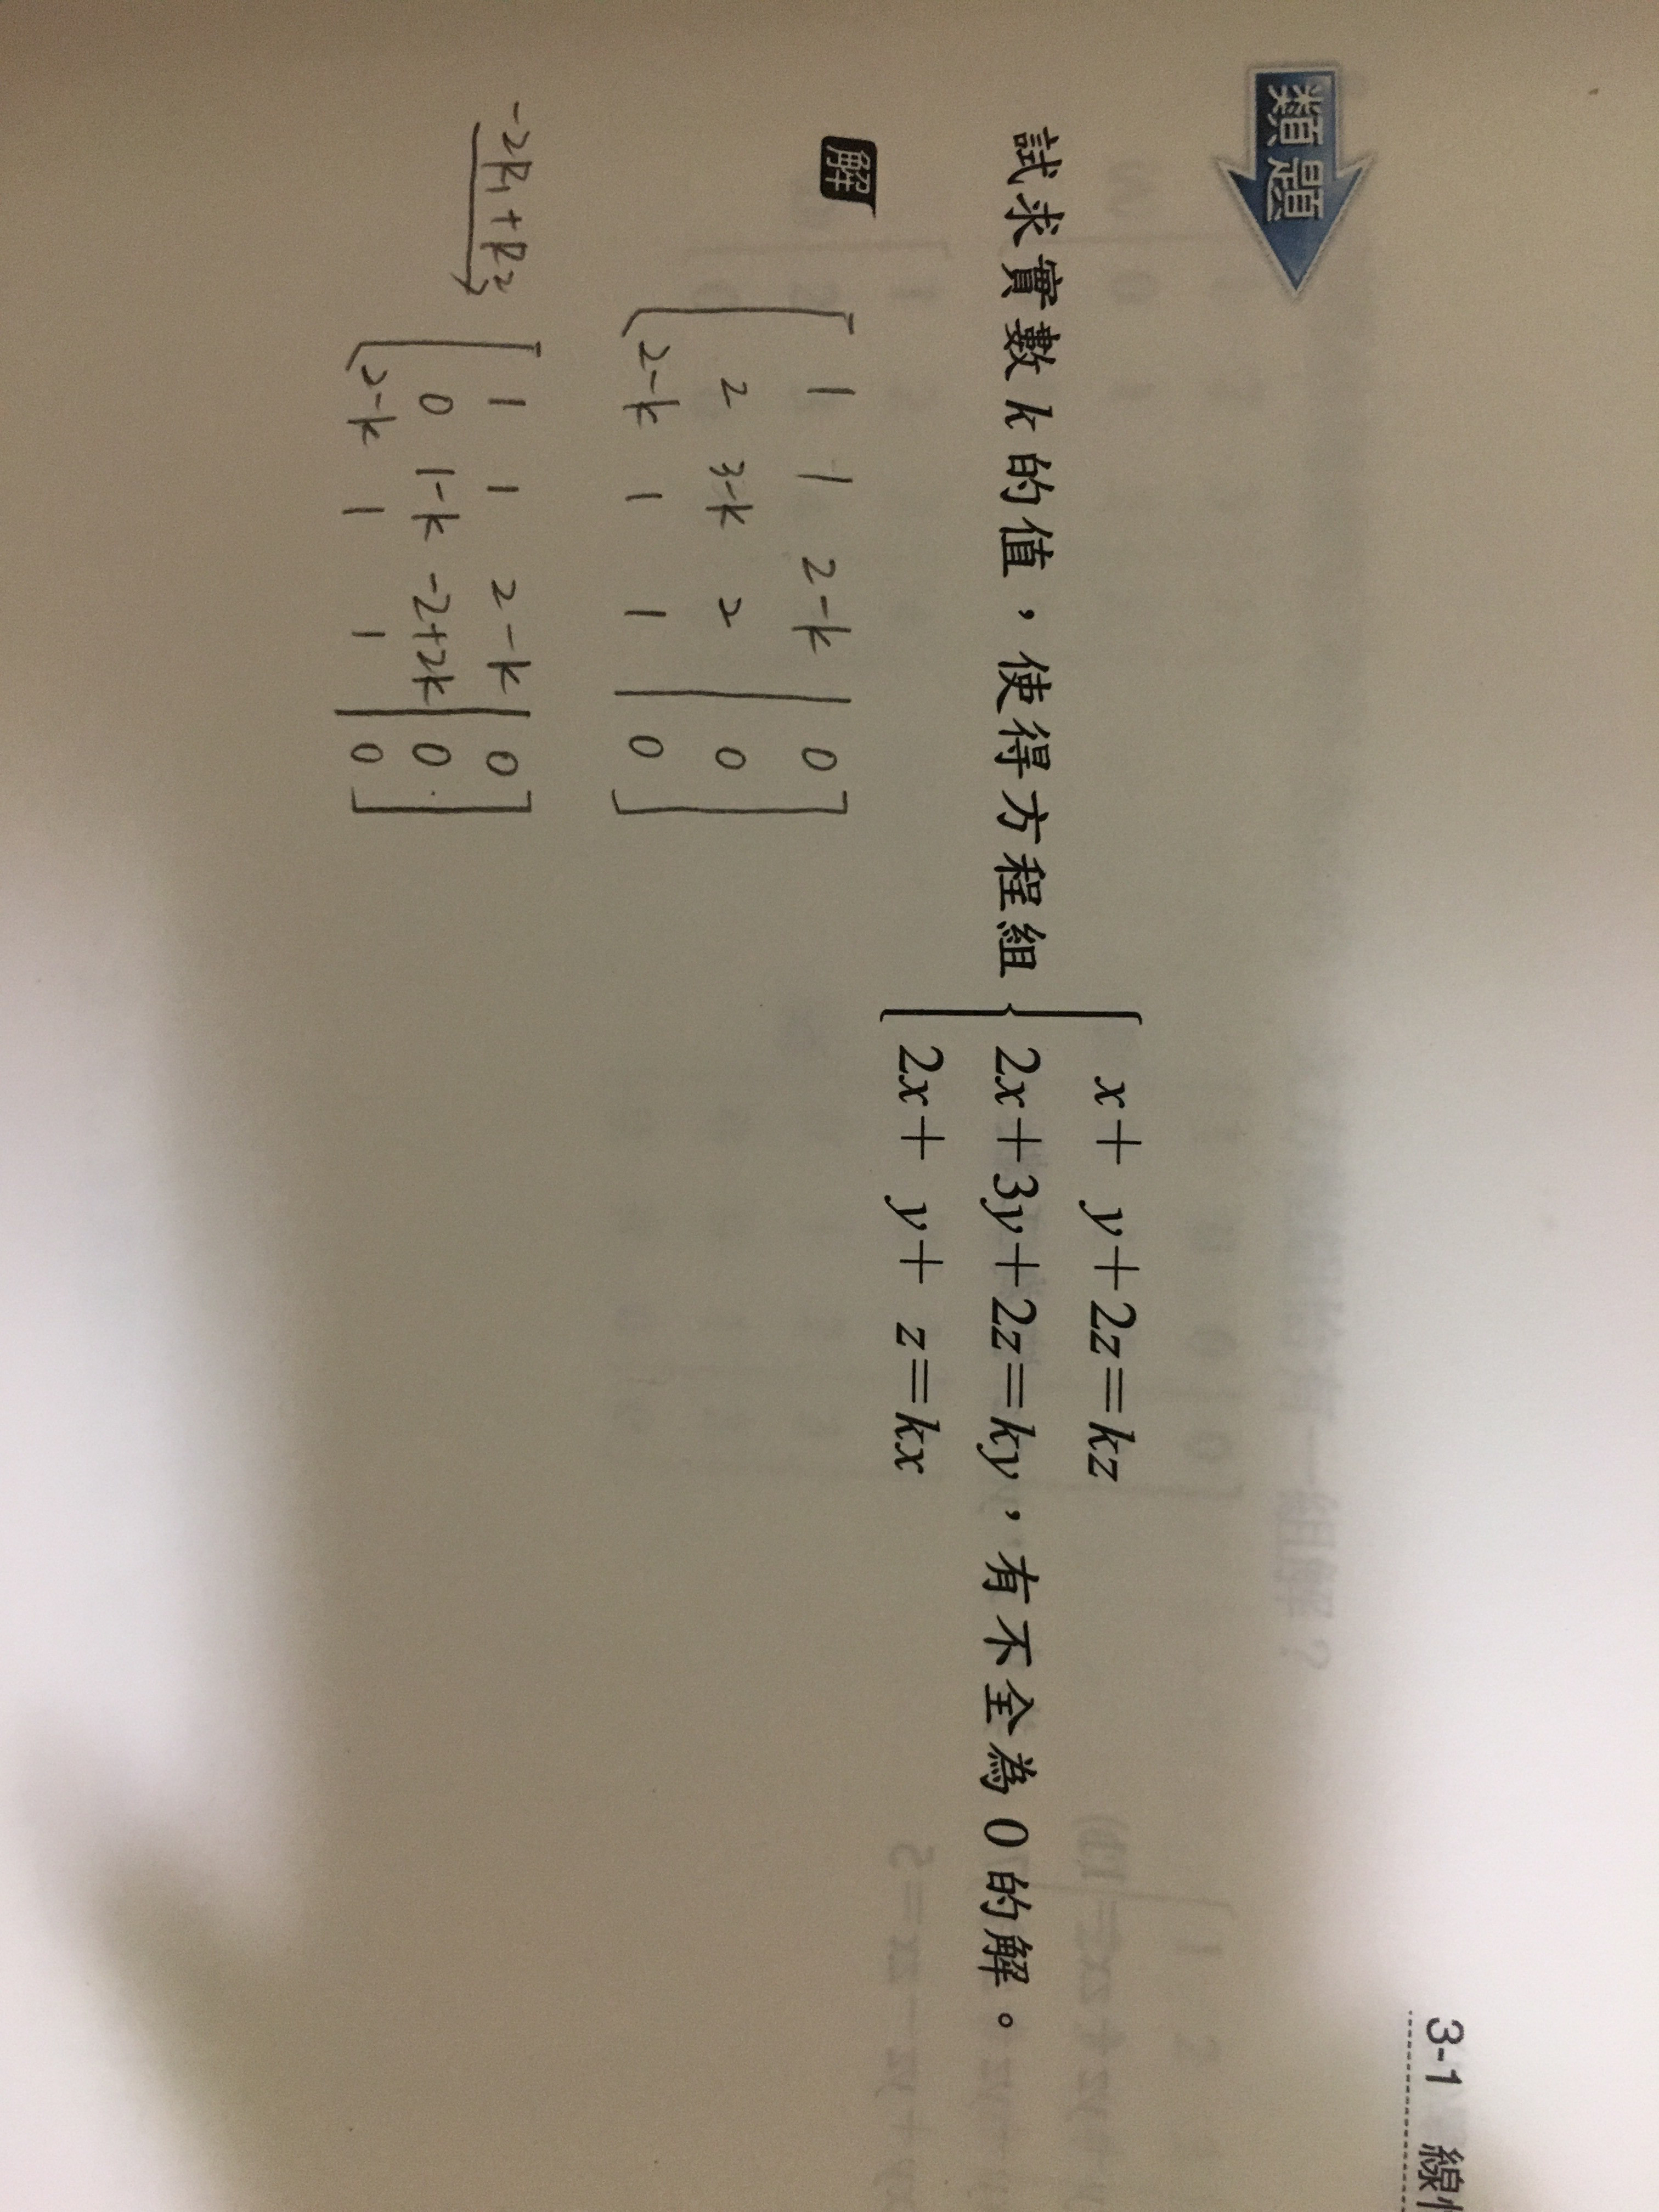 3-1 線
類題
試求實數k的值，使得方程組
x+ y+2z=kz
2x+3y+2z=ky
2x+ y+ z=kx
，有不全為0的解。
解
1 1 2-k | 0
2 3-k 2 | 0
2-k 1 1 | 0
-2R₁+R₂
1 1 2-k | 0
0 1-k -2+2k | 0
2-k 1 1 | 0